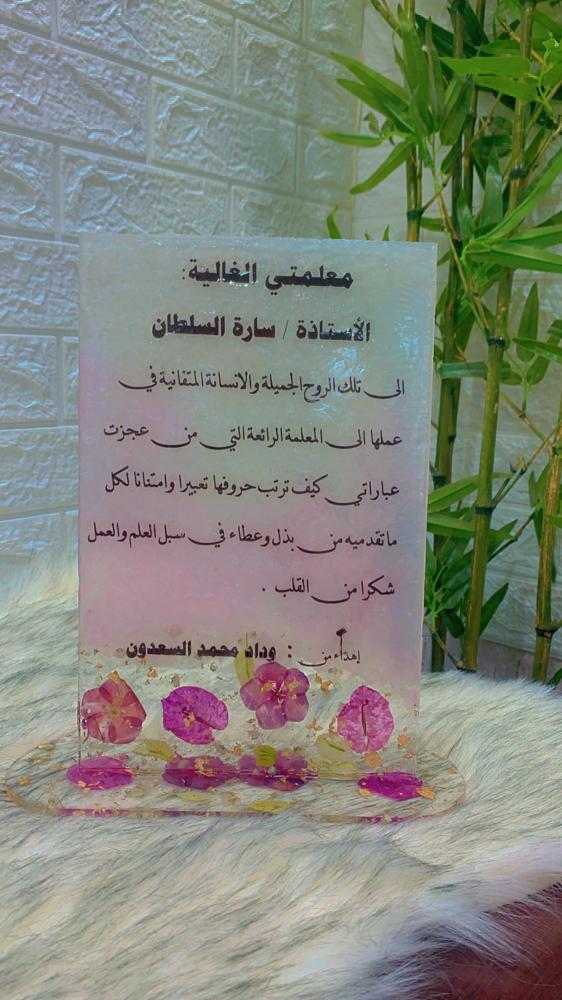 معلمتي الغالية:
الأستاذة / سارة السلطان
الى تلك الروح الجميلة والانسانة المتفانية في
عملها الى المعلمة الرائعة التي من عجزت
عباراتي كيف ترتب حروفها تعبيرا وامتنانا لكل
ما تقدميه من بذل وعطاء في سبل العلم والعمل
شكرا من القلب .
إهداء من : وداد محمد السعدون